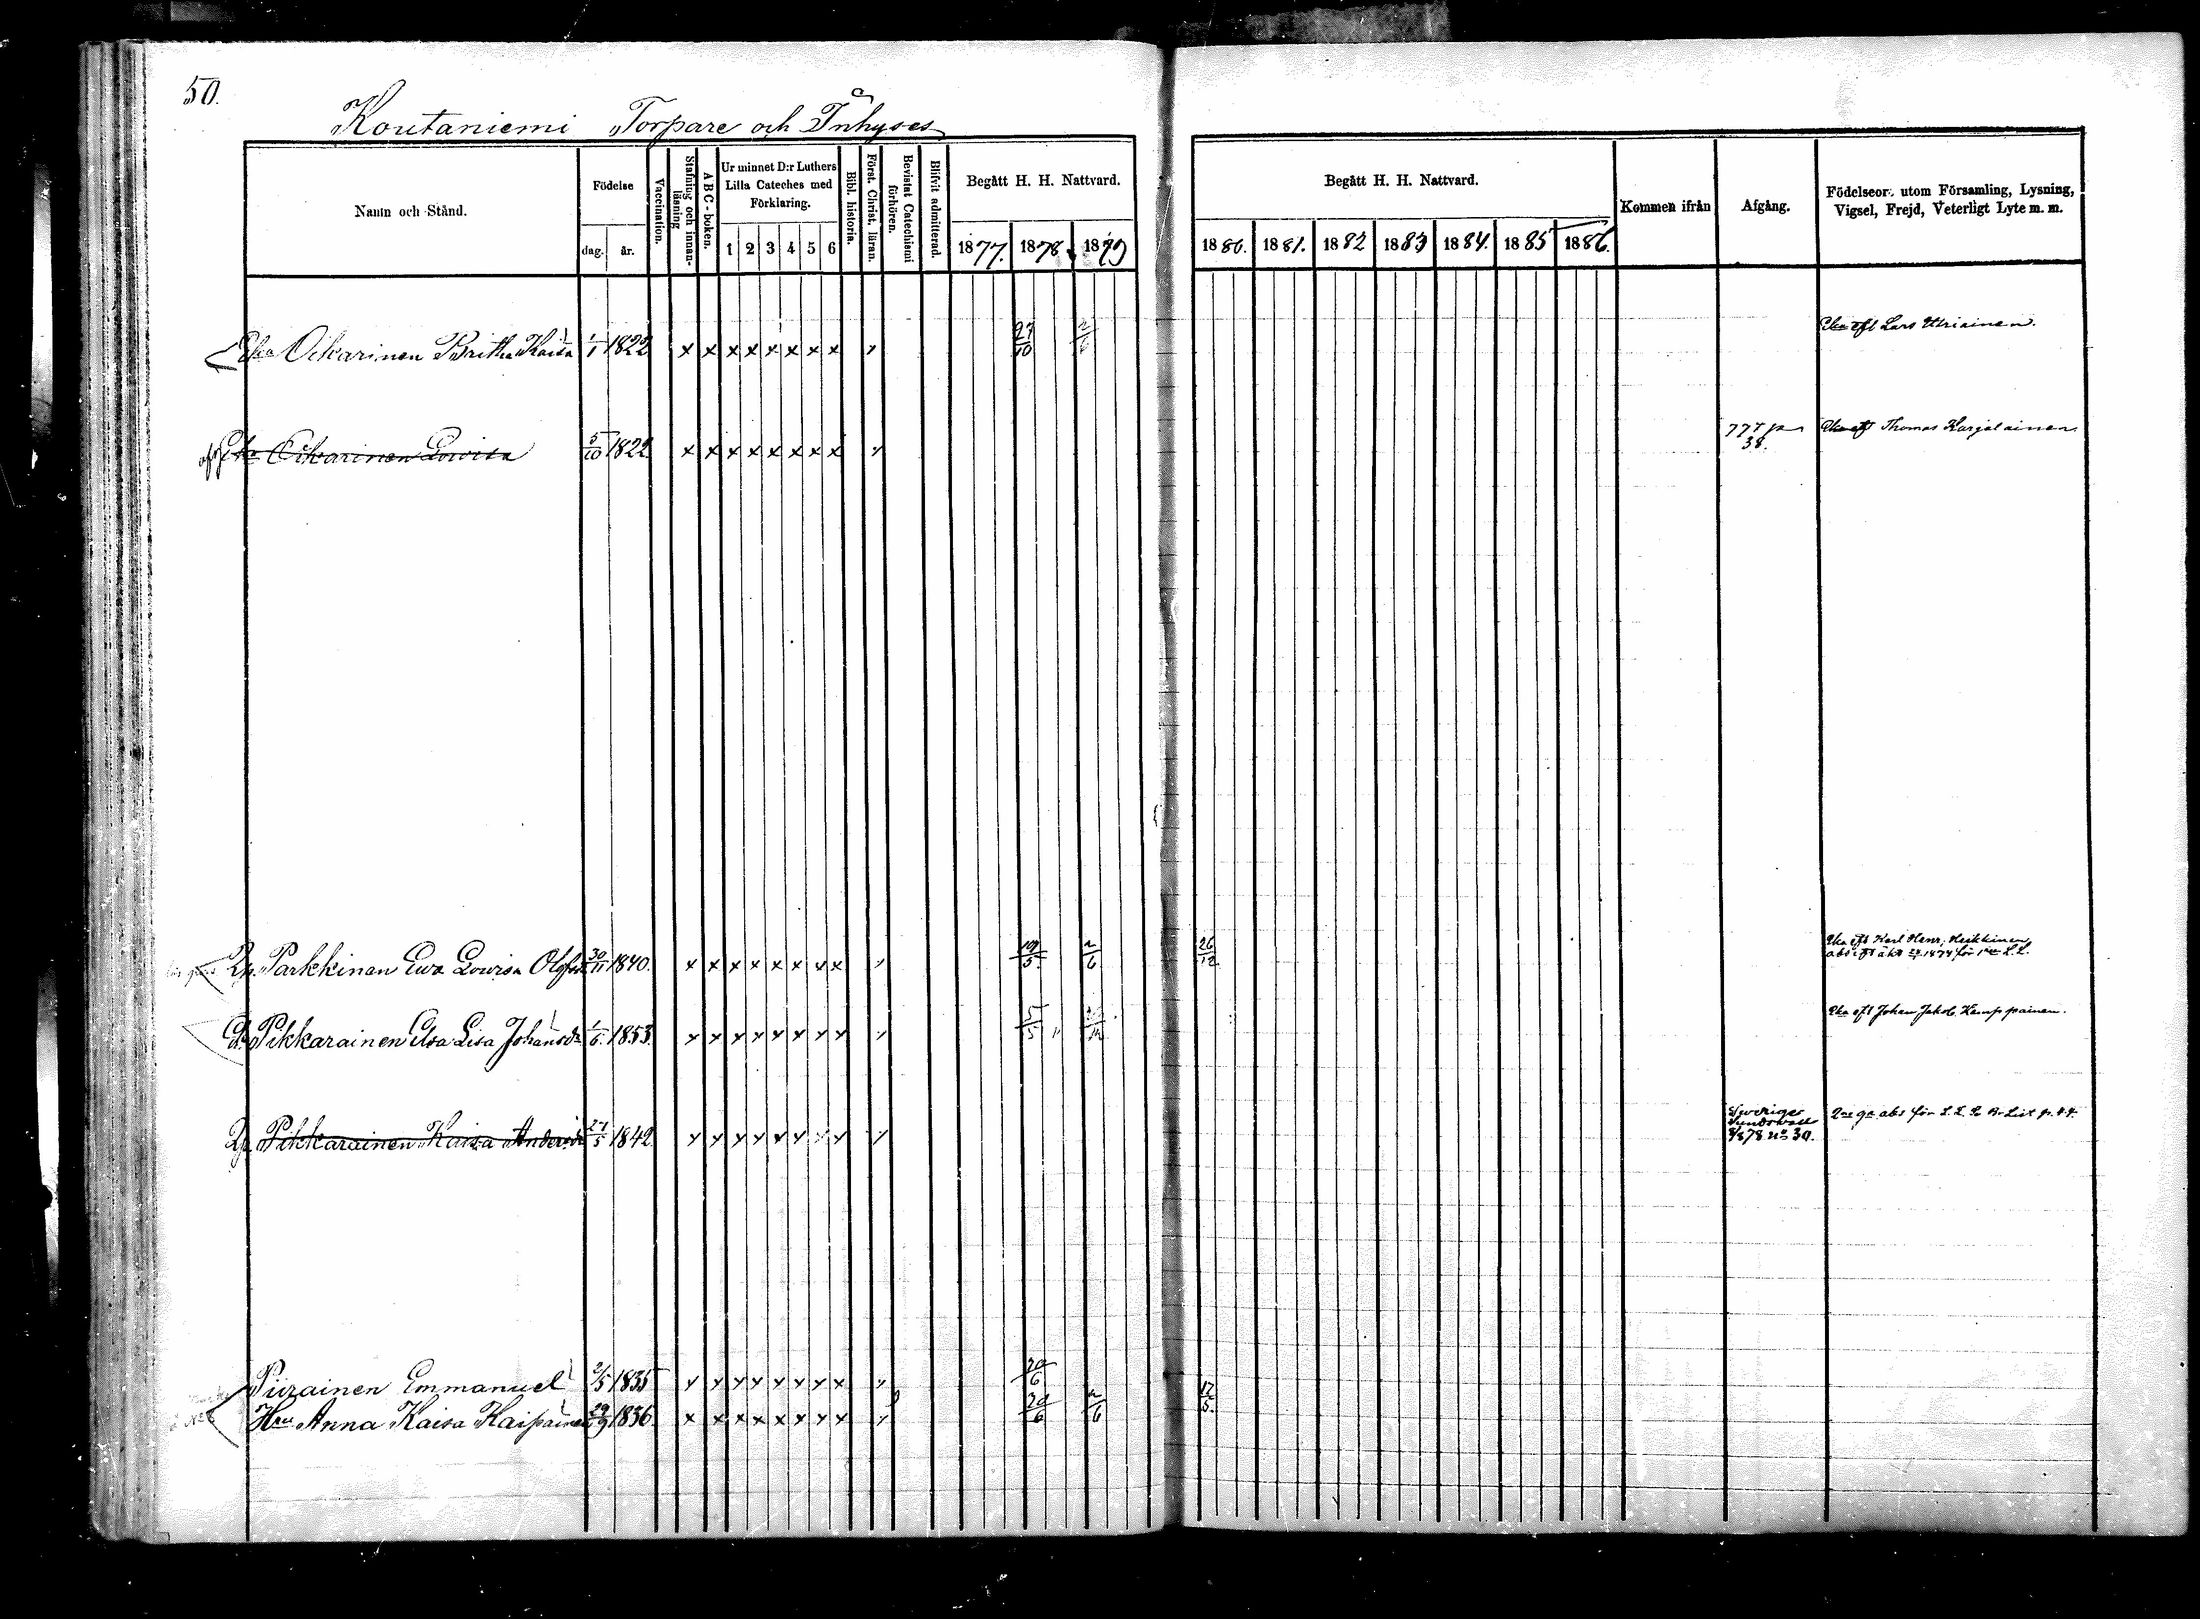 50.
Koutaniemi Torpare och Inhyses
Namn och Stånd.
Födelse
dag.
år.
Vaccination.
Stafning och innan-
läsning
ABC-boken.
Ur minnet D:r Luthers
Lilla Cateches med
Förklaring.
1 2 3 4 5 6
Bibl. historia.
Först. Christ. läran.
Bevistat Catechismi
förhören.
Blifvit admitterad.
Begått H. H. Nattvard.
1877. 1878 1879
Begått H. H. Nattvard.
1880. 1881. 1882 1883 1884. 1885 1886.
Kommen ifrån
Afgång.
Födelseort utom Församling, Lysning,
Vigsel, Frejd, Veterligt Lyte m. m.
Eka eft Lars Uriainen.
Eka Oikarinen Britha Kaisa 1/1 1822 x x x x x x x x x 27/10
777 p
38.
Eka eft Thomas Karjalainen
Eka Oikarinen Lovisa 5/10 1822 x x x x x x x x x
Eka eft Karl Henr. Heikkinen
Parkkinen Ewa Lovisa Olofsd 30/11 1840. x x x x x x x x x 19/5 2/6 26/12
Eka eft Johan Jakob Kemppainen.
Pikkarainen Elsa Lisa Johansd 1/6 1853. x x x x x x x x x
Sveriges
Sundswall
1878 No 39.
2ne gr abs för L. L.
Pikkarainen Kaisa Andersd 21/5 1842 x x x x x x x x x
Piirainen Emmanuel 2/5 1835 x x x x x x x x x 20/6
Hu Anna Kaisa Kaipainen 29/9 1836 x x x x x x x x x 20/6 2/6 17/5.